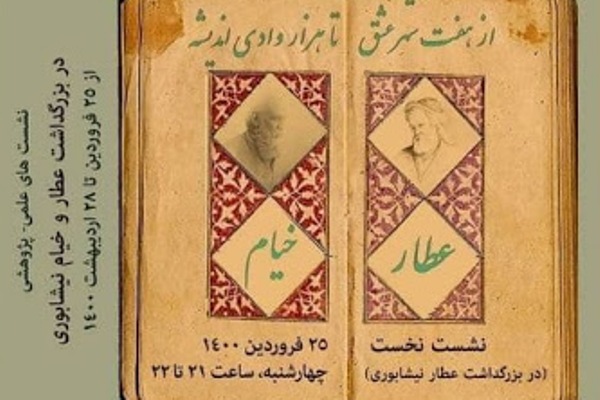 از هفت شهر عشق تا هزار وادی اندیشه
عطار
خیام
نشست نخست
(در بزرگداشت عطار نیشابوری)
۲۵ فروردین ۱۴۰۰
چهارشنبه، ساعت ۲۱ تا ۲۲
نشست های علمی- پژوهشی
در بزرگداشت عطار و خیام نیشابوری
از ۲۵ فروردین تا ۲۸ اردیبهشت ۱۴۰۰